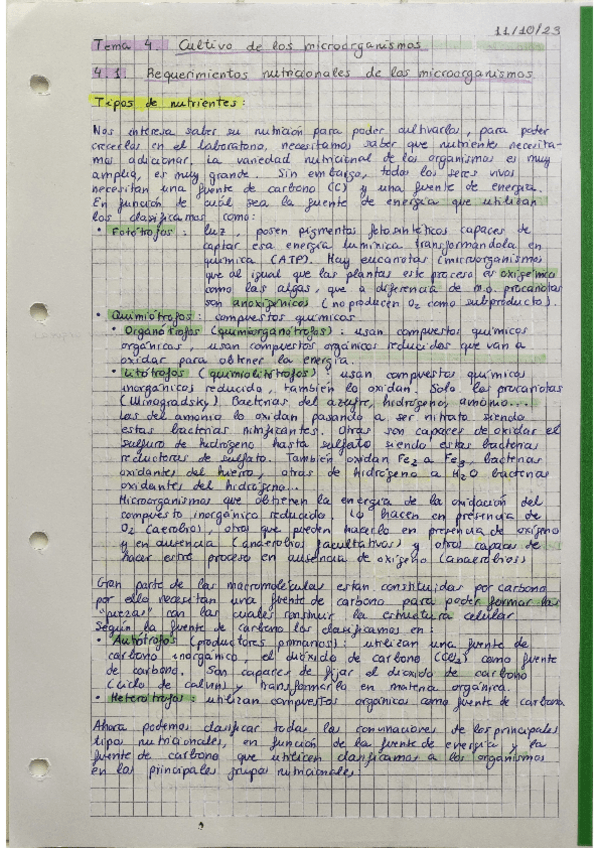 11/10/23
Tema 4. Cultivo de los microorganismos
4.1. Requerimientos nutricionales de los microorganismos.
Tipos de nutrientes:
Nos interesa saber su nutrición para poder cultivarlos, para poder
crecerlos en el laboratorio, necesitamos saber que nutrientes necesita-
mos adicionar. La variedad nutricional de los organismos es muy
amplia, es muy grande. Sin embargo, todos los seres vivos
necesitan una fuente de carbono (C) y una fuente de energía.
En función de cuál sea la fuente de energía que utilizan
los clasificamos como:
• Fotótrofos: luz, poseen pigmentos fotosintéticos capaces de
captar esa energía lumínica transformándola en
química (ATP). Hay eucariotas (microorganismos
que al igual que las plantas este proceso es oxigénico
como las algas, que a diferencia de m.o. procariotas
son anoxigénicos (no producen O2 como subproducto).
• Quimiótrofos: compuestos químicos
• Organótrofos (quimiorganótrofos): usan compuestos químicos
orgánicos, usan compuestos orgánicos reducidos que van a
oxidar para obtener la energía.
• Litótrofos (quimiolitótrofos): usan compuestos químicos
inorgánicos reducido, también lo oxidan. Solo los procariotas
(Winogradsky). Bacterias del azufre, hidrógeno, amonio...
las del amonio lo oxidan pasando a ser nitrato siendo
estas bacterias nitrificantes. Otras son capaces de oxidar el
sulfuro de hidrógeno hasta sulfato siendo estas bacterias
reductoras de sulfato. También oxidan Fe2 a Fe3, bacterias
oxidantes del hierro, otras de hidrógeno a H2O bacterias
oxidantes del hidrógeno...
Microorganismos que obtienen la energía de la oxidación del
compuesto inorgánico reducido. Lo hacen en presencia de
O2 (aerobios), otros que pueden hacerlo en presencia de oxígeno
y en ausencia (anaerobios facultativos) y otros capaces de
hacer este proceso en ausencia de oxígeno (anaerobios)
Gran parte de las macromoléculas están constituidas por carbono
por ello necesitan una fuente de carbono para poder formar las
"piezas" con las cuales construir la estructura celular.
Según la fuente de carbono los clasificamos en:
• Autótrofos (productores primarios): utilizan una fuente de
carbono inorgánico, el dióxido de carbono (CO2) como fuente
de carbono. Son capaces de fijar el dióxido de carbono
(Ciclo de Calvin) y transformarla en materia orgánica.
• Heterótrofos: utilizan compuestos orgánicos como fuente de carbono.
Ahora podemos clasificar todas las convinaciones de los principales
tipos nutricionales, en función de la fuente de energía y la
fuente de carbono que utilicen clasificamos a los organismos
en los principales grupos nutricionales: